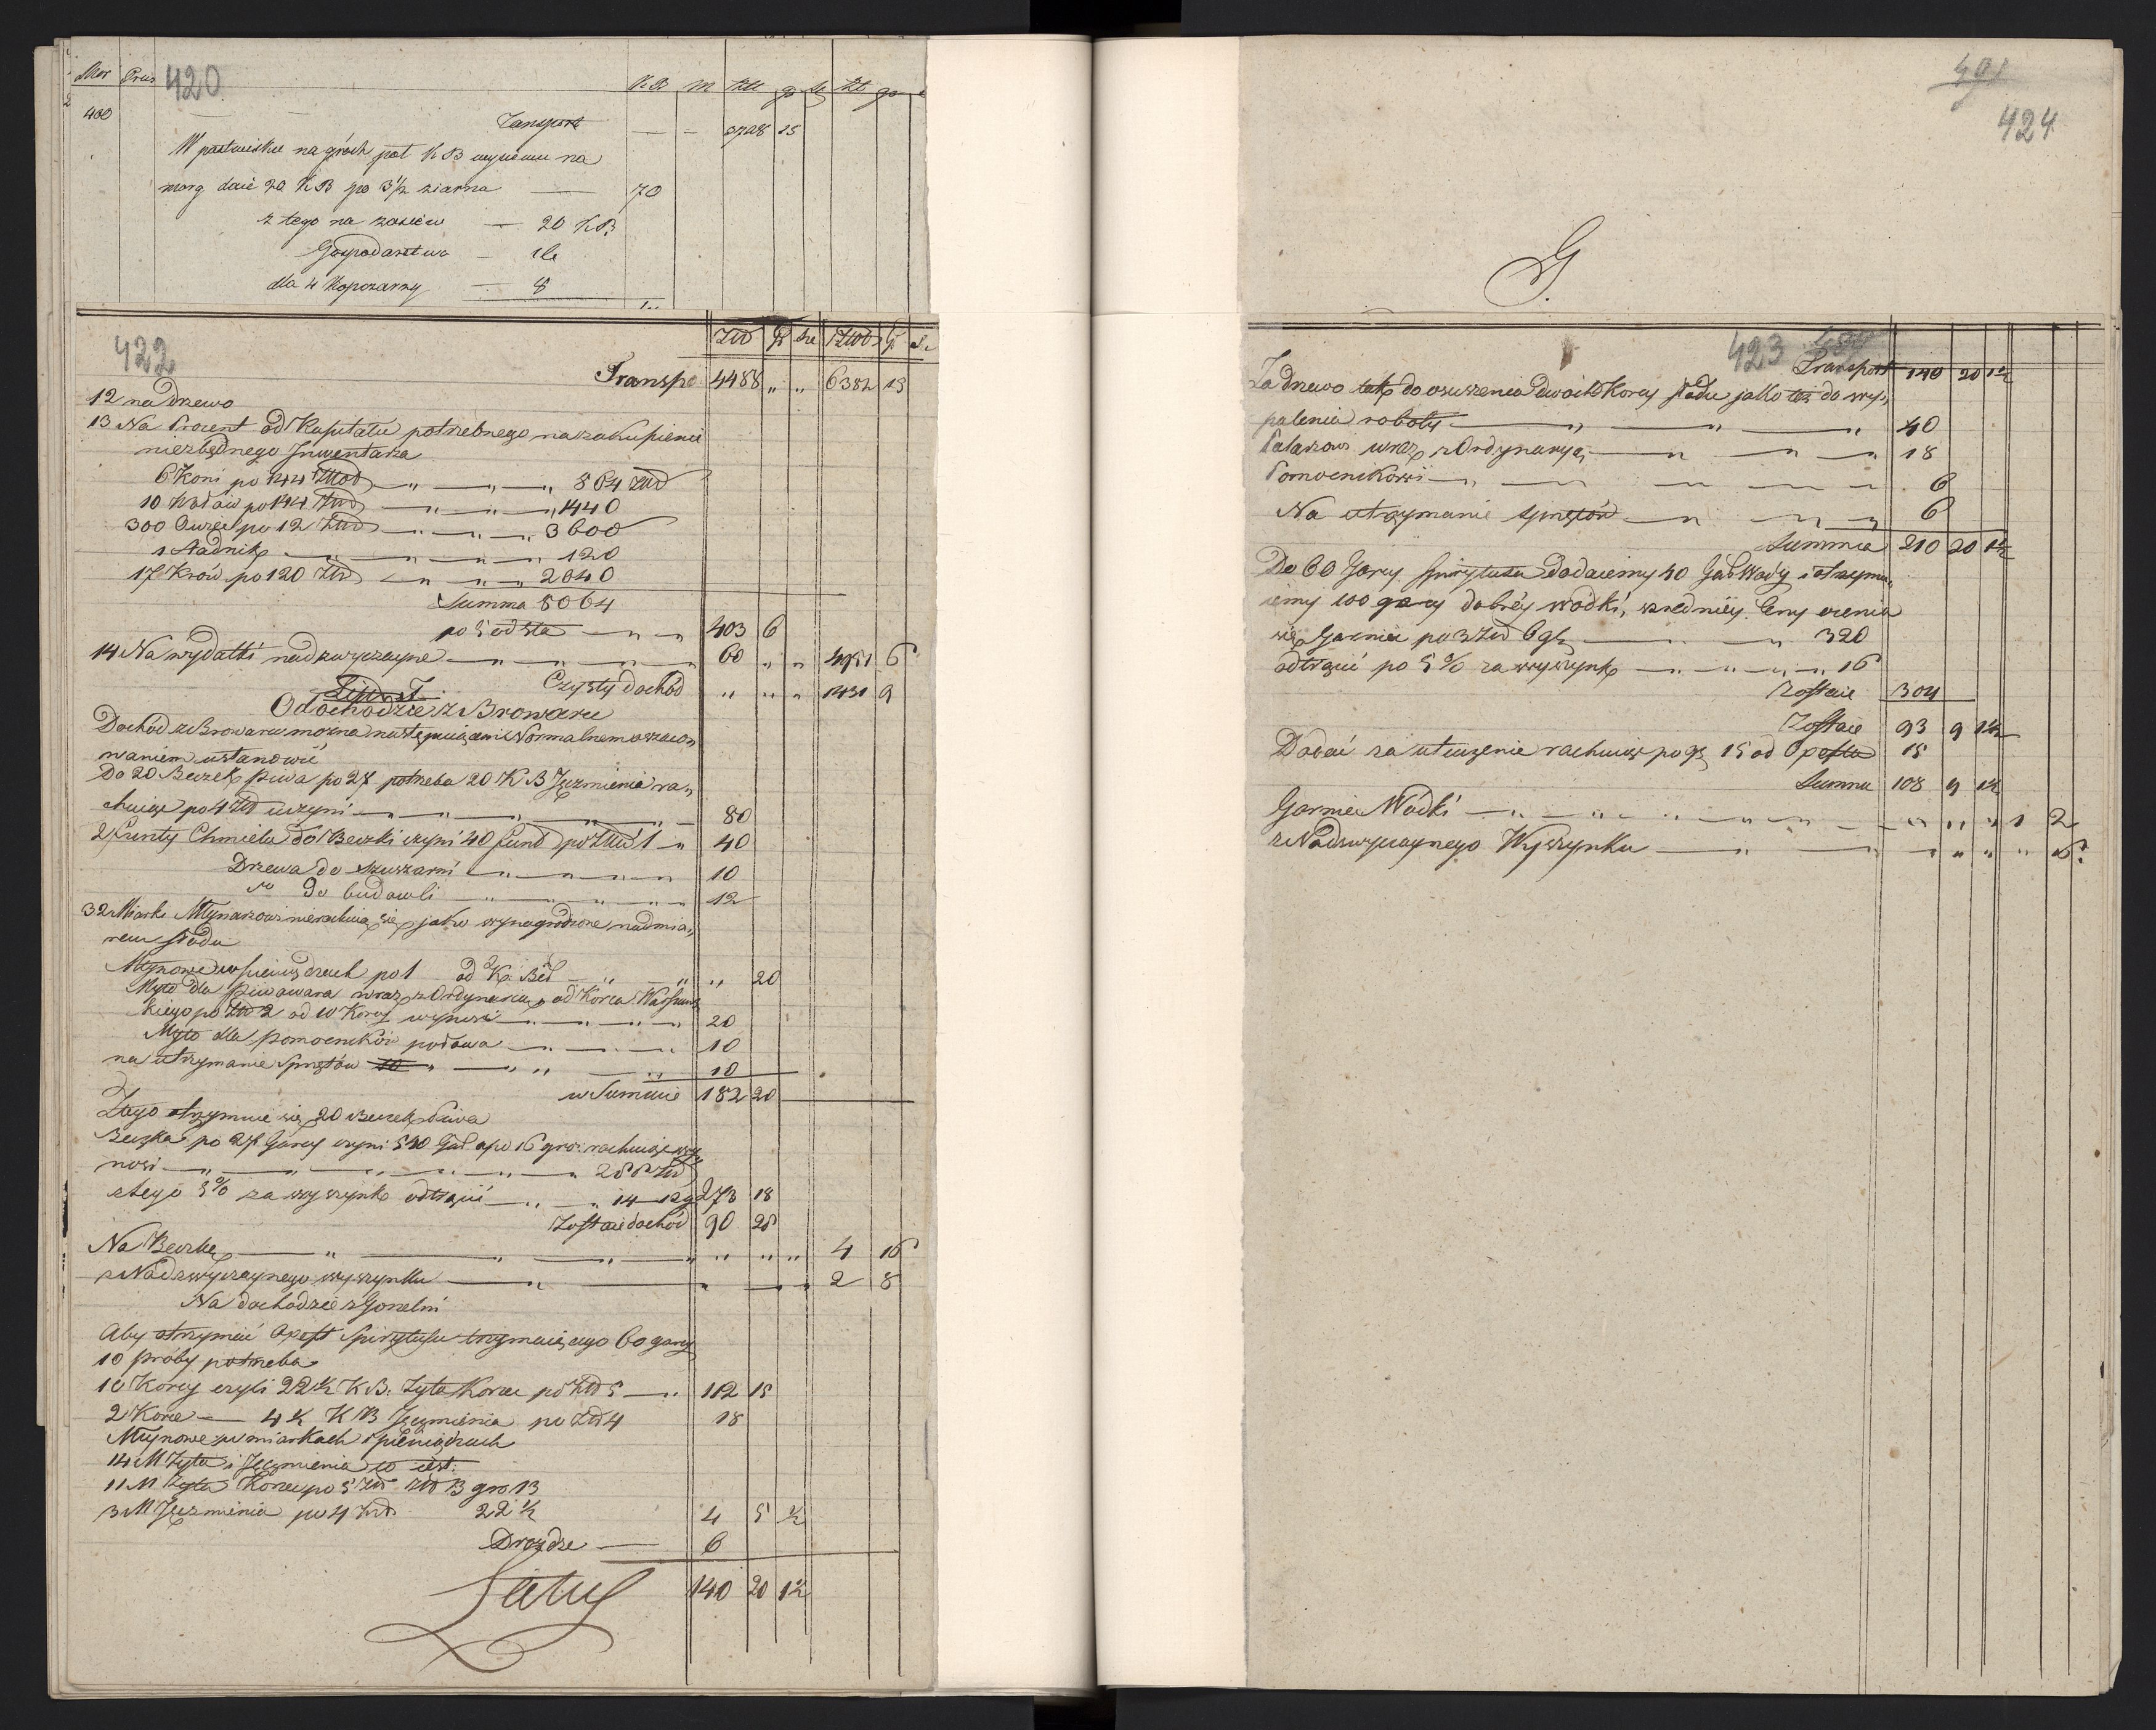 Mor Prus 420 KB M Złł gr sz Zł gr
400 — — Transport — — 3728 15
W pastwisku na groch pat KB wysiewu na
morg daie 20 KB po 3½ ziarna — 70
z tego na zasiew — 20 KB
Gospodarstwo — 16
dla 4 Kopczarzy — 8
422
Złł G sze Złł G. S.
Transpo 4488 „ „ 6382 15
12 na drzewo
13 Na Procent od Kapitału potrzebnego na zakupienie
niezbędnego Inwentarza
6 Koni po 144 Złł — „ — „ — „ 864 Złł
10 Wołów po 144 Złł — „ — „ — „ 1440
300 Owiec po 12 Złł — „ — „ 3600
1 Stadnik — „ — „ — „ 120
17 Krów po 120 Złł — „ — „ 2040
Summa 8064
po 5 od sta — „ — „ 403 6
14 Na wydatki nadzwyczayne — „ — „ — „ 60 „ „ 4951 6
Czysty dochód „ „ „ 1431 9
O dochodzie z Browaru
Dochód z Browaru można następuiącem Normalnem szaco„
waniem ustanowić
Do 20 Beczek piwa po 27 potrzeba 20 KB Jęczmienia ra„
chuiąc po 4 Złł uczyni — „ — „ — 80
2 funty Chmielu do 1 Beczki czyni 40 funt po Złł 1 — „ 40
Drzewa do szuszarni — „ — „ — „ 10
„ do budowli — „ — „ — „ 12
32 Miarki Młynarzowi nierachuią się jako wynagrodzone nadmia„
rem słodu
Młynowe w pieniądzach po 1 od K. Ber — „ — „ „ 20
Myto dla piwowara wraz z Ordynaryą od Korca Warszaws
kiego po Złł 2 od 10 Korcy wynosi — „ — „ — „ 20
Myto dla pomocników połowa — „ — „ — „ 10
na utrzymanie Sprzętów 10 „ — „ „ — „ 10
w Summie 182 20
Z tego otrzymuie się 20 Beczek Piwa
Beczka po 27 Garcy czyni 540 Gar a po 16 gro: rachuiąc wy„
nosi — „ — „ — „ — „ 288 Złł
z tego 5% za wyszynk odtrącić — „ — „ 14—12 g 273 18
Zostaie dochód 90 28
Na Beczkę — „ — „ — „ „ „ „ 4 16
z Nadzwyczaynego wyszynku — „ — „ — „ 2 8
Na dochodzie z Gorzelni
Aby otrzymać Oxeft Spirytusu trzymaiącego 60 garcy
10 próby potrzeba
10 Korcy czyli 22½ KB. Żyta Korzec po Złł 5 — „ 112 15
2 Korce — 4½ KB Jęczmienia po Złł 4 18
Młynowe w miarkach i pieniądzach
14 M Żyta i Jęczmienia to iest:
11 M Żyta Korzec po 5 Złł Złł 3 gro 13
3 M Jęczmienia po 4 Złł 22½ 4 5 ½
Drożdże — 6
Latus 140 20 1½
424
G.
423
Transport 140 20 1½
Za drzewo tak do osuszenia dwóch Korcy słodu jako też do wy„
palenia roboty — „ — „ — „ 40
Palaczowi wraz z Ordynaryą — „ — „ — „ 18
Pomocnikowi — „ — „ — „ 6
Na utrzymanie sprzętów — „ — „ — „ 6
Summa 210 20 1½
Do 60 Garcy Spirytusu dodaiemy 40 Gar Wody i otrzymu„
iemy 100 garcy dobréy wódki, w średniéy Ceny cenia
się Garniec po 3 Złł 6 g — „ — „ 320
odtrącić po 5% za wyszynk — „ — „ — „ 16
Zostaie 304
Zostaie 93 9 1½
Dodać za utuczenie rachuiąc po g 15 od Oxeftu 15
Summa 108 9 1½
Garniec Wódki — „ — „ — „ — „ „ „ „ 1 2
z Nadzwyczaynego Wyszynku — „ — „ — „ „ „ „ 16.